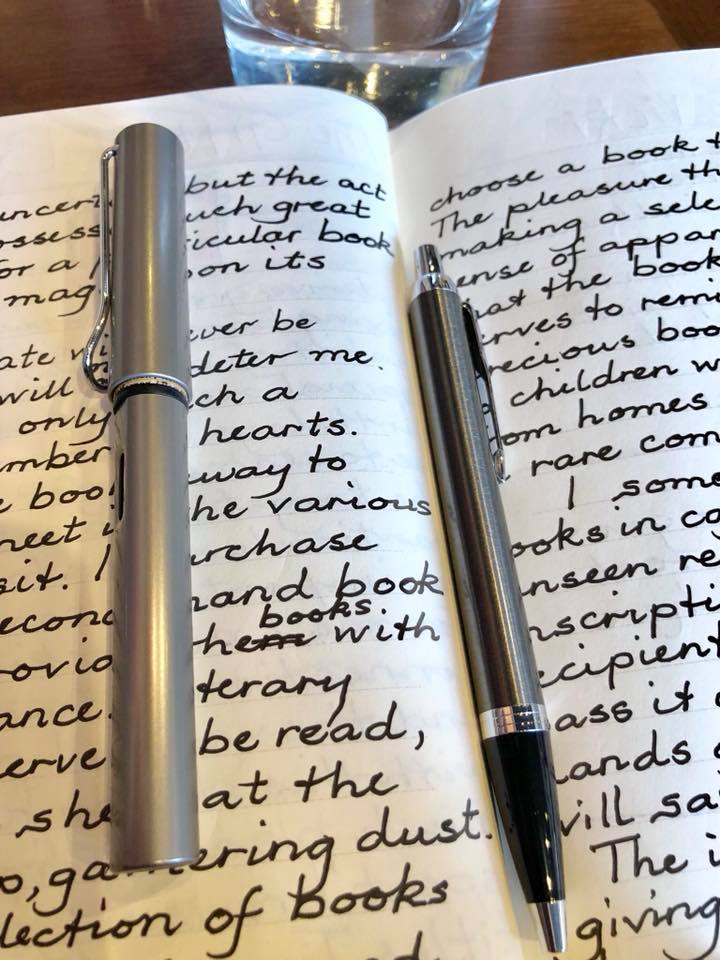 uncert but the act
ossess uch great
for a icular book
mag on its
ate wi ever be
will deter me.
only ch a
mber hearts.
e boo way to
meet i he various
sit. I urchase
econd hand book
books.
rovid them with
ance. terary
erve be read,
she at the
o, gathering dust.
lection of books
choose a book t
The pleasure th
making a sele
ense of appar
hat the book
rves to remi
recious boo
children w
om homes
rare com
I some
ooks in co
nseen re
nscripti
ecipient
ass it o
ands
will sa
The i
giving